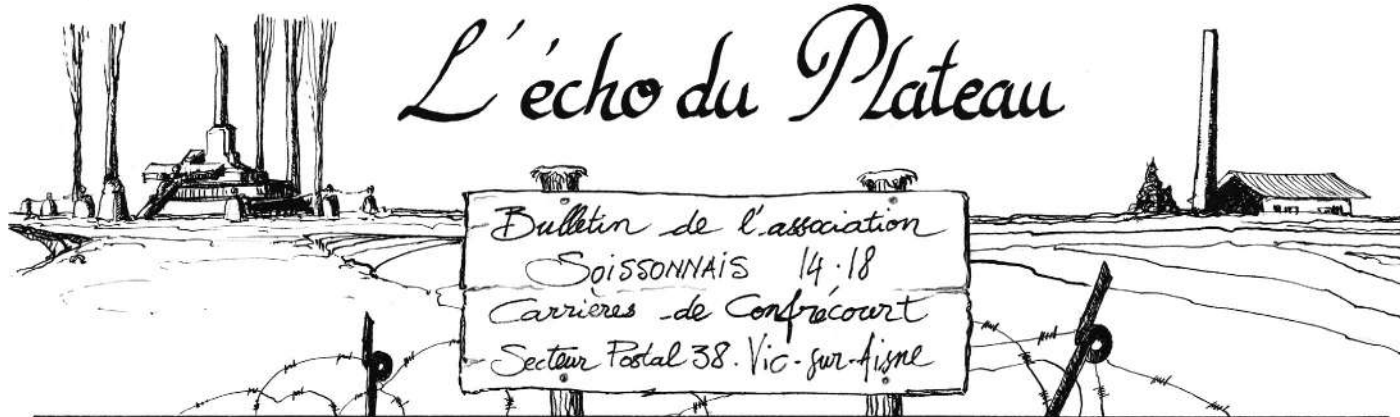 L'écho du Plateau
Bulletin de l'association
SOISSONNAIS 14.18
Carrières de Confrécourt
Secteur Postal 38. Vic-sur-Aisne